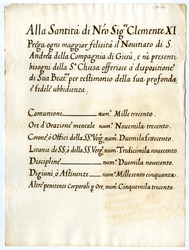 Alla Santità di Nro Sigre Clemente XI.
Prega ogni maggior felicità il Nouitiato di S.
Andrea della Compagnia di Giesù, e nè presenti
bisogni della Sta Chiesa offerisce à disposizione
di Sua Beatne per testimonio della sua profonda,
e fedele ubbidienza.
Comunioni numo Mille trecento.
Ore d'Orazione mentale numo Nouemila trecento.
Corone, ò Offici della SSma Verge numo Duemila settecento
Litanie de SS. ò della SSma Verge numo Tredicimila nouecento
Discipline numo Duemila nouecento.
Digiuni ò Astinenze numo Millecento cinquanta.
Altre penitenze Corporali, ò Ore, numo Cinquemila trecento.